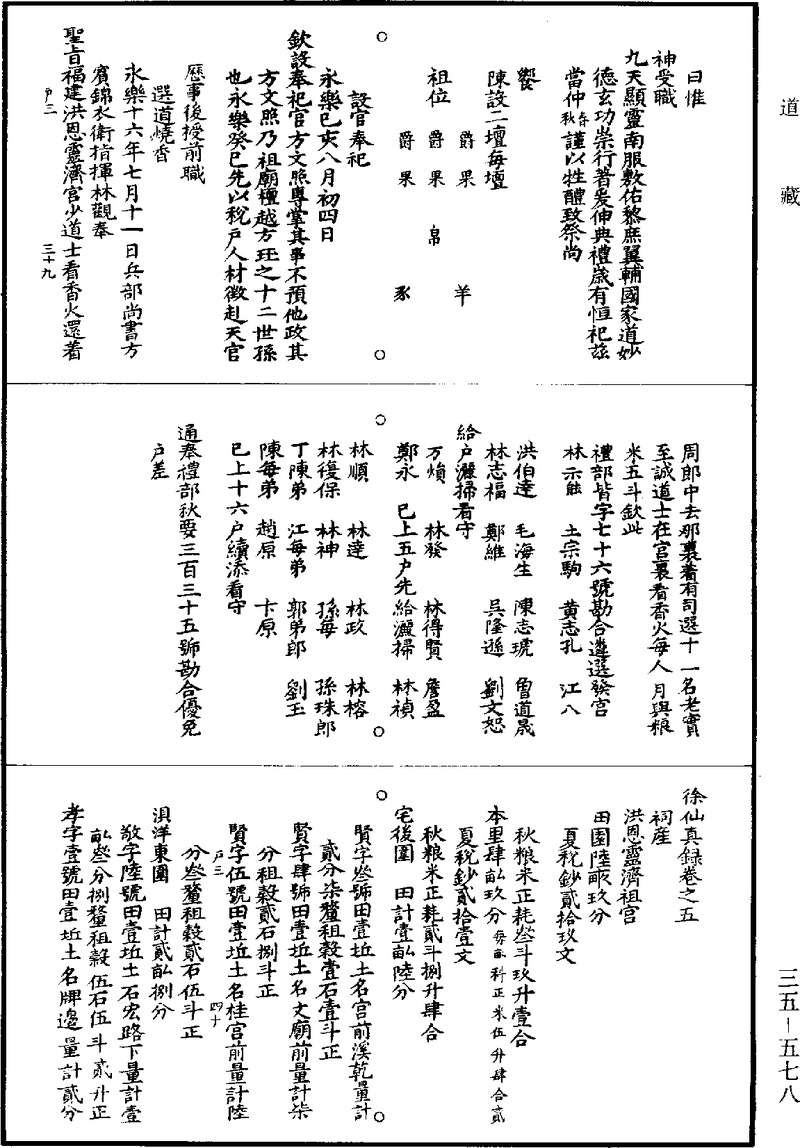 道藏
曰惟
神受職
九天顯靈南服敷佑黎庶翼輔國家道妙
德玄功崇行著爰伸典禮歲有恒祀茲
當仲春秋謹以牲醴致祭尚
饗
陳設二壇每壇
爵果 羊
祖位 爵果 帛
爵果 豕
設官奉祀
永樂己亥八月初四日
欽設奉祀官方文照專掌其事不預他政其
方文照乃祖廟檀越方玨之十二世孫
也永樂癸巳先以稅戶人材徵赴天官
歷事後授前職
選道燒香
永樂十六年七月十一日兵部尚書方
賓錦衣衛指揮林觀奉
聖旨福建洪恩靈濟宮少道士看香火還着
戶三 三十九
周郎中去那裏着有司選十一名老實
至誠道士在宮裏看香火每人月與粮
米五斗欽此
禮部皆字七十六號勘合遴選發宮
林示能 土宗駒 黃志孔 江八
洪伯達 毛海生 陳志琥 魯道晟
林志福 鄭維 吳隆遜 劉文恕
給戶灑掃看守
万熵 林發 林得賢 詹盈
鄭永 已上五戶先給灑掃 林禎
林順 林達 林政 林榕
林復保 林神 孫每 孫珠郎
丁陳弟 江每弟 郭弟郎 劉玉
陳每弟 趙原 卞原
已上十六戶續添看守
通奉禮部秋要三百三十五號勘合優免
戶差
徐仙真錄卷之五
祠産
洪恩靈濟祖宮
田園陸畝玖分
夏稅鈔貳拾玖文
秋粮米正耗叁斗玖升壹合
本里肆畝玖分每畝科正米伍升肆合貳
夏稅鈔貳拾壹文
秋粮米正耗貳斗捌升肆合
宅後園 田計壹畝陸分
賢字叁號田壹坵土名宮前溪乾量計
貳分柒釐租穀壹石壹斗正
賢字肆號田壹坵土名文廟前量計柒
分租穀貳石捌斗正
賢字伍號田壹坵土名桂宮前量計陸
戶三 四十
分叁釐租穀貳石伍斗正
湨洋東園 田計貳畝捌分
敬字陸號田壹坵土石宏路下量計壹
畝叁分捌釐租穀伍石伍斗貳升正
孝字壹號田壹坵土名牌邊量計貳分
三五－五七八